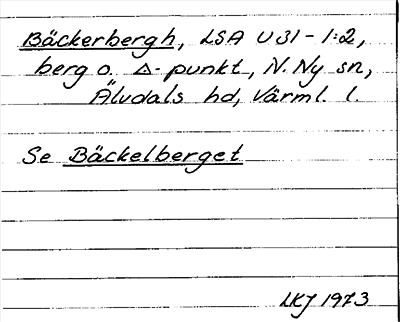 Bäckerbergh, LSA U 31-1:2,
berg o. Δ-punkt, N. Ny sn,
Älvdals hd, Värml. l.
Se Bäckelberget
LKJ 1973